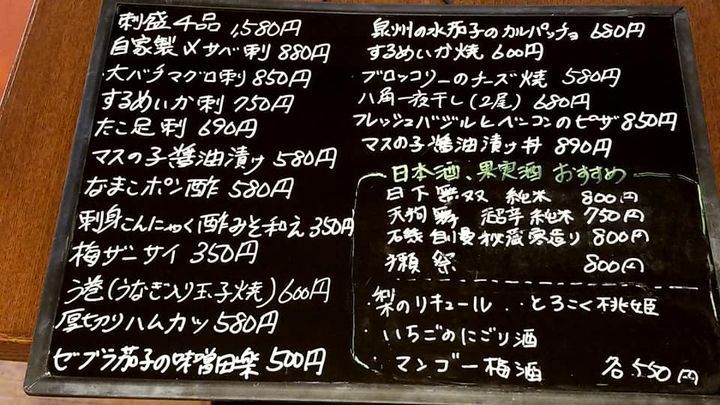 刺盛4品 1,580円
自家製〆サバ刺 880円
大バチマグロ刺 850円
するめいか刺 750円
たこ足刺 690円
マスの子醤油漬け 580円
なまこポン酢 580円
刺身こんにゃく酢みそ和え 350円
梅ザーサイ 350円
う巻(うなぎ入り玉子焼) 600円
厚切りハムカツ 580円
ゼブラ茄子の味噌田楽 500円
泉州の水茄子のカルパッチョ 680円
するめいか焼 600円
ブロッコリーのチーズ焼 580円
八角一夜干し(2尾) 680円
フレッシュバジルとベーコンのピザ 850円
マスの子醤油漬け丼 890円
日本酒、果実酒 おすすめ
日下無双 純米 800円
天狗舞 超辛純米 750円
石鎚 自慢秘蔵寒造り 800円
獺祭 800円
梨のリキュール・とろこく桃姫
・いちごのにごり酒
・マンゴー梅酒 各550円